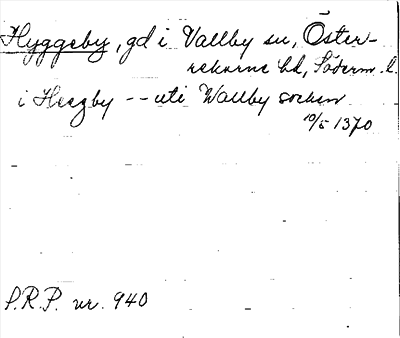 Hyggeby, gd i Vallby sn, Öster-
rekarne hd, Söderm. l.
i Hegby -- uti Wallby socken
10/5 1370
P.R.P. nr. 940